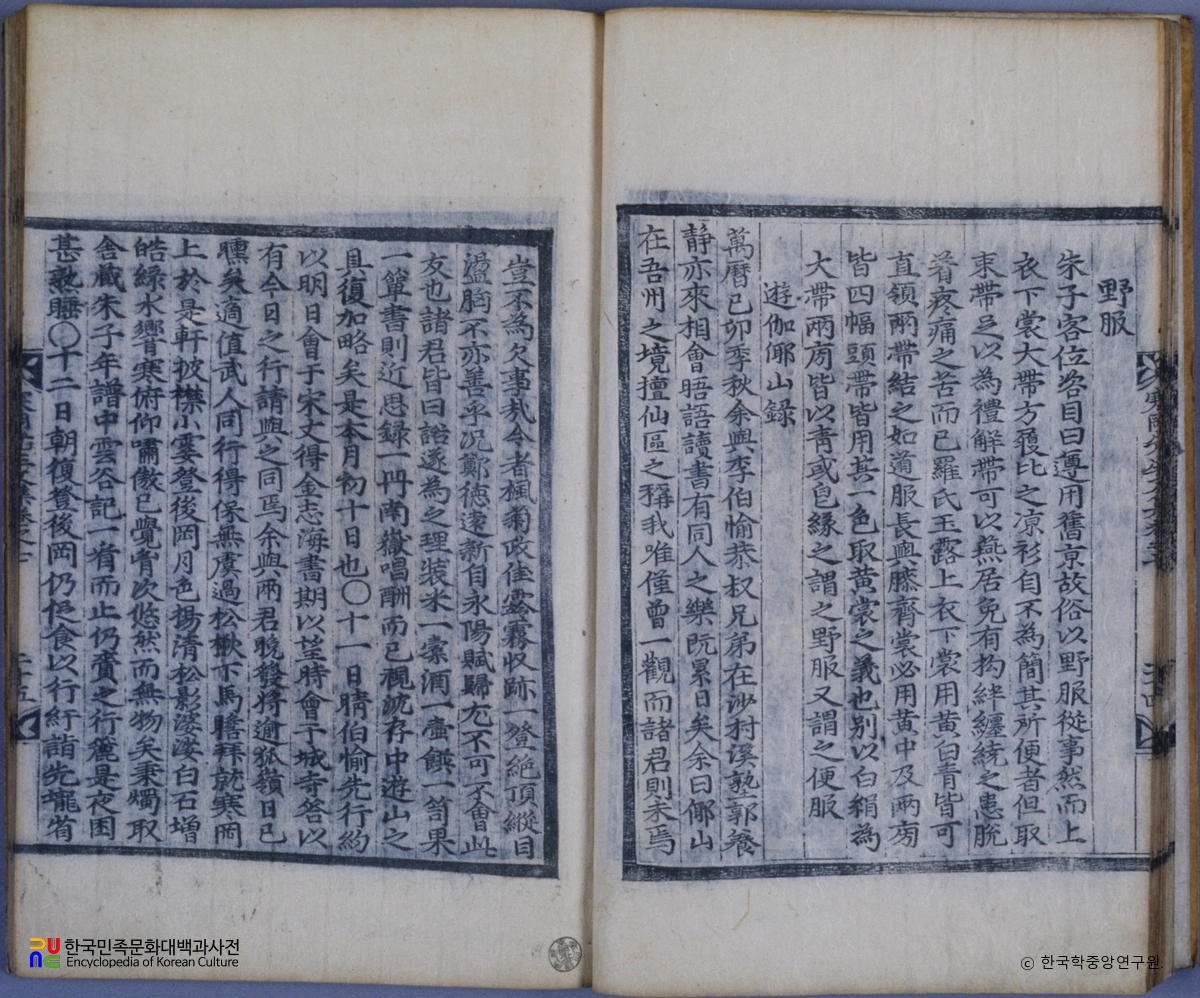 野服
朱子客位咨目曰遵用舊京故俗以野服從事然而上
衣下裳大帶方履比之凉衫自不為簡其所便者但取
束帶足以為禮解帶可以燕居免有拘絆纏繞之患脫
着疼痛之苦而已羅氏玉露上衣下裳用黃白青皆可
直領兩帶結之如道服長與膝齊裳必用黃中及兩旁
皆四幅頭帶皆用其一色取黃裳之義也別以白絹為
大帶兩旁皆以青或皂緣之謂之野服又謂之便服
遊伽倻山録
萬曆己卯季秋余與李伯愉恭叔兄弟在沙村溪塾郭養
靜亦來相會晤語讀書有同人之樂旣累日矣余曰倻山
在吾州之境擅仙區之稱我唯僅曾一觀而諸君則未焉
豈不為欠事㦲今者楓菊政佳雰霧收跡一登絶頂縱目
盪胸不亦善乎况鄭德遠新自永陽賦歸尤不可不會此
友也諸君皆曰諾遂為之理裝米一橐酒一壷饌一笥果
一簞書則近思録一冊南嶽唱酬而已視沈存中遊山之
具復加略矣是本月初十日也〇十一日晴伯愉先行約
以明日會于宋丈得金志海書期以望時會于城寺答以
有今日之行請與之同焉余與兩君晚發將逾狐嶺日已
曛矣適值武人同行得保無虞過松楸下馬瞻拜就寒岡
上於是軒披襟小霎登後岡月色揚清松影婆娑白石增
皓綠水響寒俯仰嘯傲已覺胷次悠然而無物矣秉燭取
舍藏朱子年譜中雲谷記一看而止仍賷之行麓是夜困
甚熟睡〇十二日朝復登後岡仍促食以行紆詣先壠省
한국민족문화대백과사전
Encyclopedia of Korean Culture
© 한국학중앙연구원.